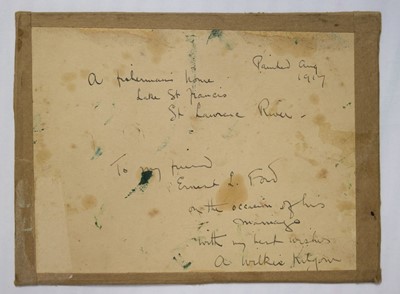 Painted Aug
1917
A fisherman's home
Lake St Francis
St Lawrence River -
To my friend
Ernest L. Ford
on the occasion of his
marriage
with my best wishes
A Wilkie Kilgour